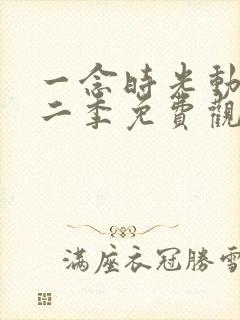 一念時光動
二季免費觀
滿座衣冠勝雪